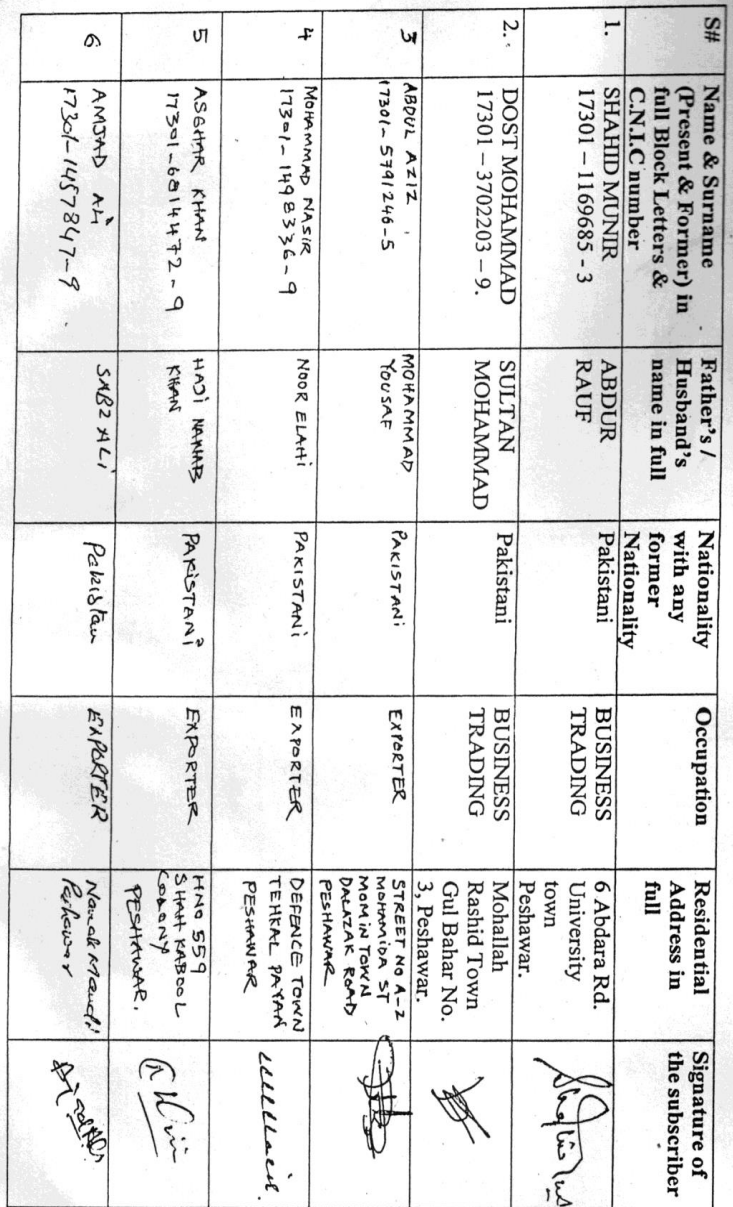 S#
Name & Surname
(Present & Former) in
full Block Letters &
C.N.I.C number
Father's /
Husband's
name in full
Nationality
with any
former
Nationality
Occupation
Residential
Address in
full
Signature of
the subscriber
1.
SHAHID MUNIR
17301 – 1169685 - 3
ABDUR
RAUF
Pakistani
BUSINESS
TRADING
6 Abdara Rd.
University
town
Peshawar.
2.
DOST MOHAMMAD
17301 – 3702203 – 9.
SULTAN
MOHAMMAD
Pakistani
BUSINESS
TRADING
Mohallah
Rashid Town
Gul Bahar No.
3, Peshawar.
3
ABDUL AZIZ
17301-5791246-5
MOHAMMAD
YOUSAF
PAKISTANi
EXPORTER
STREET NO A-2
MOHAMIDA ST
MOMIN TOWN
DALAZAK ROAD
PESHAWAR
4
MOHAMMAD NASIR
17301-1498336-9
NOOR ELAHi
PAKISTANi
EXPORTER
DEFENCE TOWN
TEHKAL PAYAN
PESHAWAR
5
ASGHAR KHAN
17301-6814472-9
HAJi NAWAB
KHAN
PAKISTANi
EXPORTER
HNO 559
SHAH KABOOL
COLONY
PESHAWAR.
6
AMJAD ALi
17301-1457847-9
SABZ ALi
Pakistan
EXPORTER
Namak Mandi
Peshawar